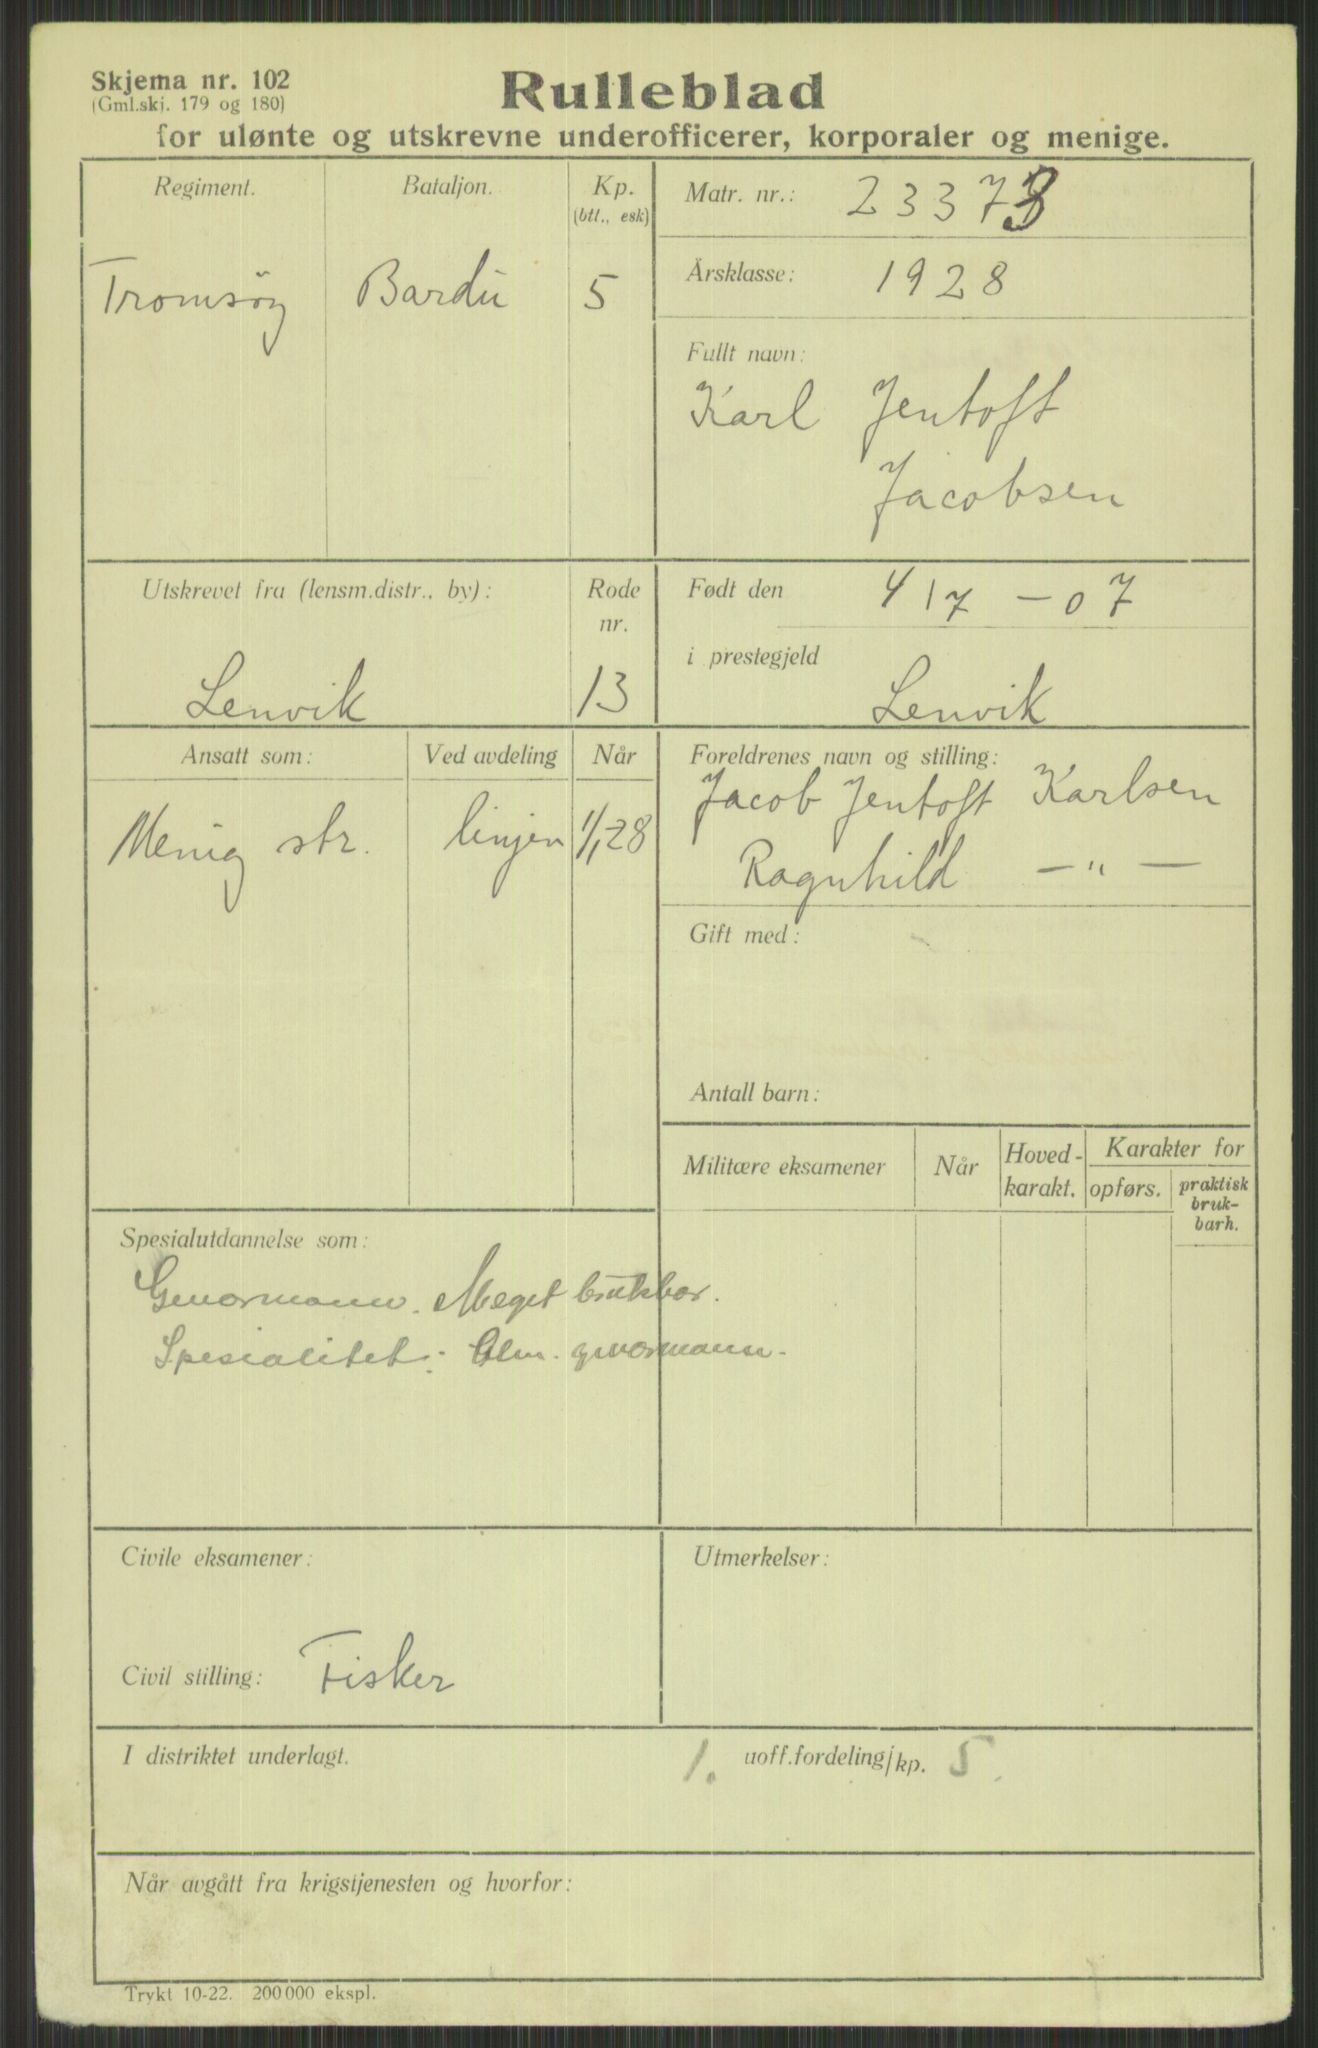 Skjema nr. 102
(Gml.skj. 179 og 180)
Rulleblad
for ulønte og utskrevne underofficerer, korporaler og menige.
Regiment.
Bataljon.
Kp.
(btl., esk)
Tromsøy
Bardu
5
Matr. nr.: 23373
Årsklasse: 1928
Fullt navn:
Karl Jentoft
Jacobsen
Utskrevet fra (lensm.distr., by):
Rode
nr.
Lenvik
13
Født den 4/7 - 07
i prestegjeld
Lenvik
Ansatt som:
Ved avdeling
Når
Menig str.
linjen
1/1 28
Foreldrenes navn og stilling:
Jacob Jentoft Karlsen
Ragnhild — " —
Gift med:
Antall barn:
Militære eksamener
Når
Hoved-
karakt.
Karakter for
opførs.
praktisk
bruk-
barh.
Spesialutdannelse som:
Geværmann. Meget brukbar.
Spesialitet: Alm. geværmann.
Civile eksamener:
Civil stilling: Fisker
Utmerkelser:
I distriktet underlagt.
1. uoff.fordeling/kp. 5.
Når avgått fra krigstjenesten og hvorfor:
Trykt 10-22. 200 000 ekspl.